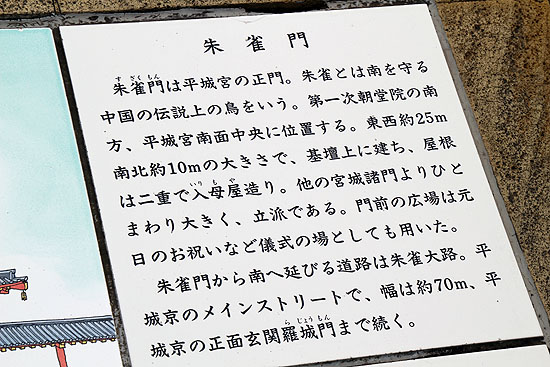 朱雀門
朱雀門は平城宮の正門。朱雀とは南を守る
中国の伝説上の鳥をいう。第一次朝堂院の南
方、平城宮南面中央に位置する。東西約25m
南北約10mの大きさで、基壇上に建ち、屋根
は二重で入母屋造り。他の宮城諸門よりひと
まわり大きく、立派である。門前の広場は元
日のお祝いなど儀式の場としても用いた。
朱雀門から南へ延びる道路は朱雀大路。平
城京のメインストリートで、幅は約70m、平
城京の正面玄関羅城門まで続く。